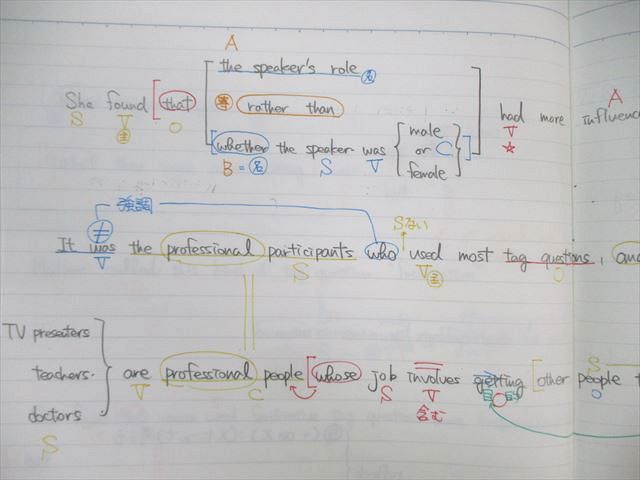 A
the speaker's role 名
She found [that 等 rather than had more influenc
S V O V
主 ☆
[whether the speaker was {male or female}]
B = 名 S V C
A
強調
≠ Sない
It was the professional participants who used most tag questions, and
V S V 主 O
TV presenters
teachers. are professional people [whose job involves getting [other people t
doctors V C S V S O
S 含む